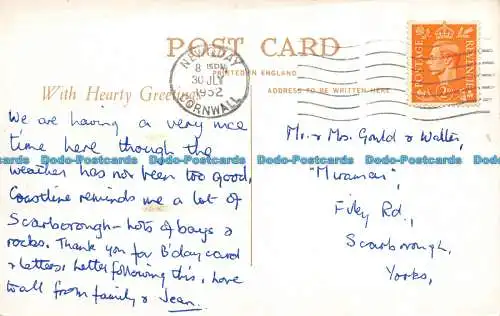 POST CARD
NEWQUAY
8 15PM
30 JLY
1952
CORNWALL
PRINTED IN ENGLAND
With Hearty Greetings
ADDRESS TO BE WRITTEN HERE
POSTAGE REVENUE
2D
We are having a very nice
time here though the
weather has not been too good,
Coastline reminds me a lot of
Scarborough - lots of bays &
rocks. Thank you for B'day card
& letters, letter following this, love
to all from family & Jean.
Mr. & Mrs. Gould & Walter,
"Miramar",
Filey Rd.,
Scarborough,
Yorks,
Dodo-Postcards Dodo-Postcards Dodo-Postcards Dodo-Postcards Dodo-Postcards
Dodo-Postcards Dodo-Postcards Dodo-Postcards Dodo-Postcards